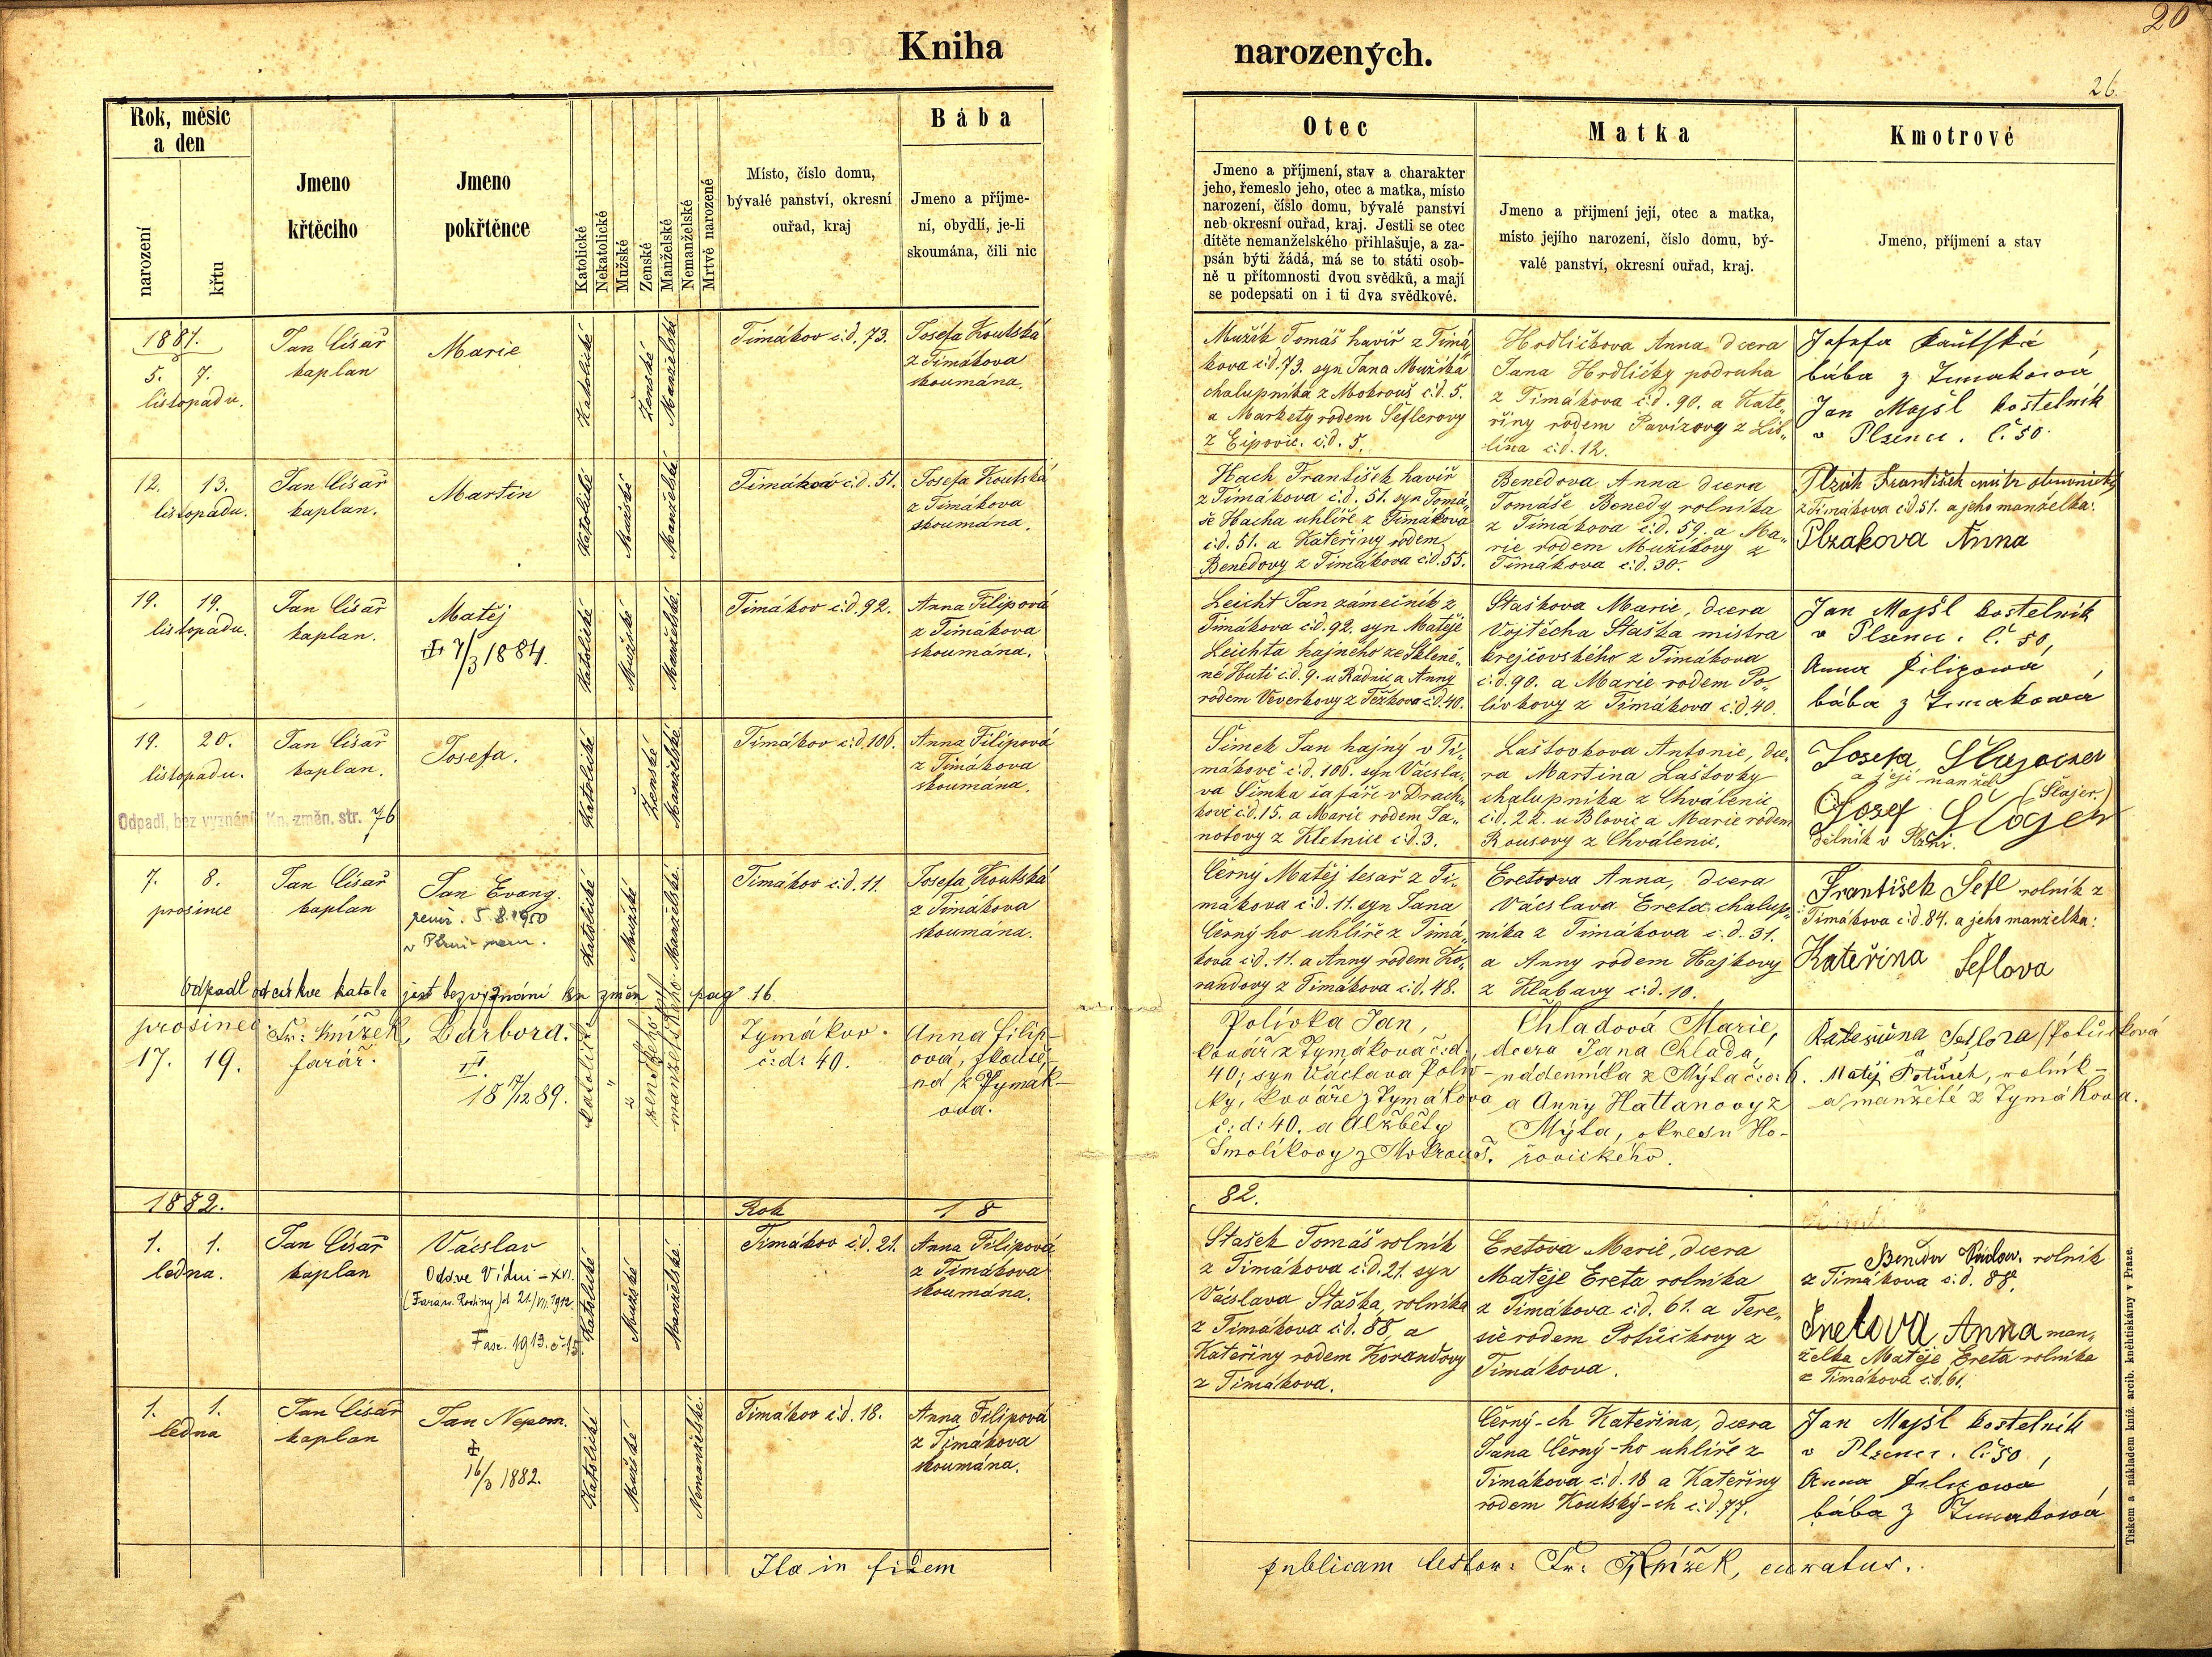 Kniha
narozených.
20
26.
Rok, měsíc
a den
narození
křtu
Jmeno
křtěcího
Jmeno
pokřtěnce
Katolické
Nekatolické
Mužské
Ženské
Manželské
Nemanželské
Mrtvě narozené
Místo, číslo domu,
bývalé panství, okresní
ouřad, kraj
Bába
Jmeno a příjme-
ní, obydlí, je-li
skoumána, čili nic
Otec
Jmeno a příjmení, stav a charakter
jeho, řemeslo jeho, otec a matka, místo
narození, číslo domu, bývalé panství
neb okresní ouřad, kraj. Jestli se otec
dítěte nemanželského přihlašuje, a za-
psán býti žádá, má se to státi osob-
ně u přítomnosti dvou svědků, a mají
se podepsati on i ti dva svědkové.
Matka
Jmeno a přijmení její, otec a matka,
místo jejího narození, číslo domu, bý-
valé panství, okresní ouřad, kraj.
Kmotrové
Jmeno, příjmení a stav
1881.
5. 7.
listopadu.
Jan Císař
kaplan
Marie
Katolické
Ženské
Manželské
Timákov č.d. 73.
Josefa Koutská
z Timákova
skoumána.
Mužík Tomáš havíř z Timá„
kova č.d. 73. syn Jana Mužíka
chalupníka z Mokrouš č.d. 5.
a Markety rodem Šeflerovy
z Ejpovic. č.d. 5.
Hrdličkova Anna dcera
Jana Hrdličky podruha
z Timákova č.d. 90. a Kate„
řiny rodem Pavízovy z Lit„
čina č.d. 12.
Josefa Kautská
bába z Timakowa
Jan Majšl kostelník
v Plzenci. č. 50.
12. 13.
listopadu.
Jan Císař
kaplan.
Martin
Katolické
Mužské
Manželské
Timákov č.d. 51.
Josefa Koutská
z Timákova
skoumána.
Hach František havíř
z Timákova č.d. 51. syn Tomá„
še Hacha uhlíře z Timákova
č.d. 51. a Kateřiny rodem
Benedovy z Timákova č.d. 55.
Benedova Anna dcera
Tomáše Benedy rolníka
z Timákova č.d. 59. a Ma„
rie rodem Mužíkovy z
Timákova č.d. 30.
Plzák František
z Timákova č.d. 51. a jeho manželka:
Plzakova Anna
19. 19.
listopadu.
Jan Císař
kaplan.
Matěj
7/3 1884.
Katolické
Mužské
Manželské
Timákov č.d. 92.
Anna Filipová
z Timákova
skoumána.
Leicht Jan zámečník z
Timákova č.d. 92. syn Matěje
Leichta hajného ze Skleně„
né Huti č.d. 9. u Radnic a Anny
rodem Veverkovy z Těžkova č.d. 40.
Staškova Marie, dcera
Vojtěcha Staška mistra
krejčovského z Timákova
č.d. 90. a Marie rodem Po„
lívkovy z Timákova č.d. 40.
Jan Majšl kostelník
v Plzenci. č. 50,
Anna Filipowá
bába z Timakowá
19. 20.
listopadu.
Odpadl, bez vyznání Kn. změn. str. 76
Jan Císař
kaplan.
Josefa.
Katolické
Ženské
Manželské
Timákov č.d. 106.
Anna Filipová
z Timákova
skoumána.
Šimek Jan hajný v Ti„
mákově č.d. 106. syn Václa„
va Šimka šafáře v Drach„
kově č.d. 15. a Marie rodem Ja„
notovy z Kletnice č.d. 3.
Laštovkova Antonie, dce„
ra Martina Laštovky
chalupníka z Chválenic
č.d. 22. u Blovic a Marie rodem
Rousovy z Chválenic.
Josefa
a její manžel
(Šlajer.)
Josef
Dělník v Plzni.
7. 8.
prosince
Jan Císař
kaplan
Jan Evang.
zemř. 5.8.1950
v Plzni
Katolické
Mužské
Manželské
Timákov č.d. 11.
Josefa Koutská
z Timákova
skoumána.
odpadl od církve katol. a jest bez vyznání kn změn pag 16.
Černý Matěj tesař z Ti„
mákova č.d. 11. syn Jana
Černý ho uhlíře z Timá„
kova č.d. 11. a Anny rodem Ko„
randovy z Timákova č.d. 48.
Eretova Anna, dcera
Václava Ereta chalup„
níka z Timákova č.d. 31.
a Anny rodem Hajkovy
z Klabavy č.d. 10.
František Šefl rolník z
Timákova č.d. 84. a jeho manželka:
Kateřina Šeflova
prosinec
17. 19.
Fr: Knížek,
farář.
Barbora.
17/12 1889.
katolické
"
"
ženského
manželského
Tymákov.
č: d: 40.
Anna Filip-
ová,
z Tymák-
ova.
Polívka Jan,
kovář z Tymákova č:d:
40; syn Václava Polív-
ky, kováře z Tymákova
č: d: 40. a Alžběty
Smolíkovy z Mokrouš.
Chladová Marie,
dcera Jana Chlada,
nádenníka z Mýta č:d: 6.
a Anny Hattanovy z
Mýta, okresu Ho-
řovického.
Kateřina
a
Matěj Potůček, rolník -
a manželé z Tymákova.
1882.
Rok 18
82.
1. 1.
ledna.
Jan Císař
kaplan
Václav
Odd. ve Vídni - XVI.
21./VII. 1912
Fasc. 1913. č. 15.
Katolické
Mužské
Manželské
Timákov č.d. 21.
Anna Filipová
z Timákova
skoumána.
Stašek Tomáš rolník
z Timákova č.d. 21. syn
Václava Staška, rolníka
z Timákova č.d. 88, a
Kateřiny rodem Korandovy
z Timákova.
Eretova Marie, dcera
Matěje Ereta rolníka
z Timákova č.d. 61. a Tere„
sie rodem Potůčkovy z
Timákova.
rolník
z Timákova č.d. 88.
Anna man„
želka Matěje Ereta rolníka
z Timákova č.d. 61.
1. 1.
ledna
Jan Císař
kaplan
Jan Nepom.
16/3 1882.
Katolické
Mužské
Nemanželské
Timakov č.d. 18.
Anna Filipová
z Timákova
skoumána.
Černý-ch Kateřina, dcera
Jana Černý-ho uhlíře z
Timákova č.d. 18 a Kateřiny
rodem Koutský-ch č.d. 77.
Jan Majšl kostelník
v Plzenci. č. 50,
Anna Filipowá
bába z Timakowá
Ita in fidem
publicam testor: Fr: Knížek, curatus.
Tiskem a nákladem kníž. arcib. kněhtiskárny v Praze.